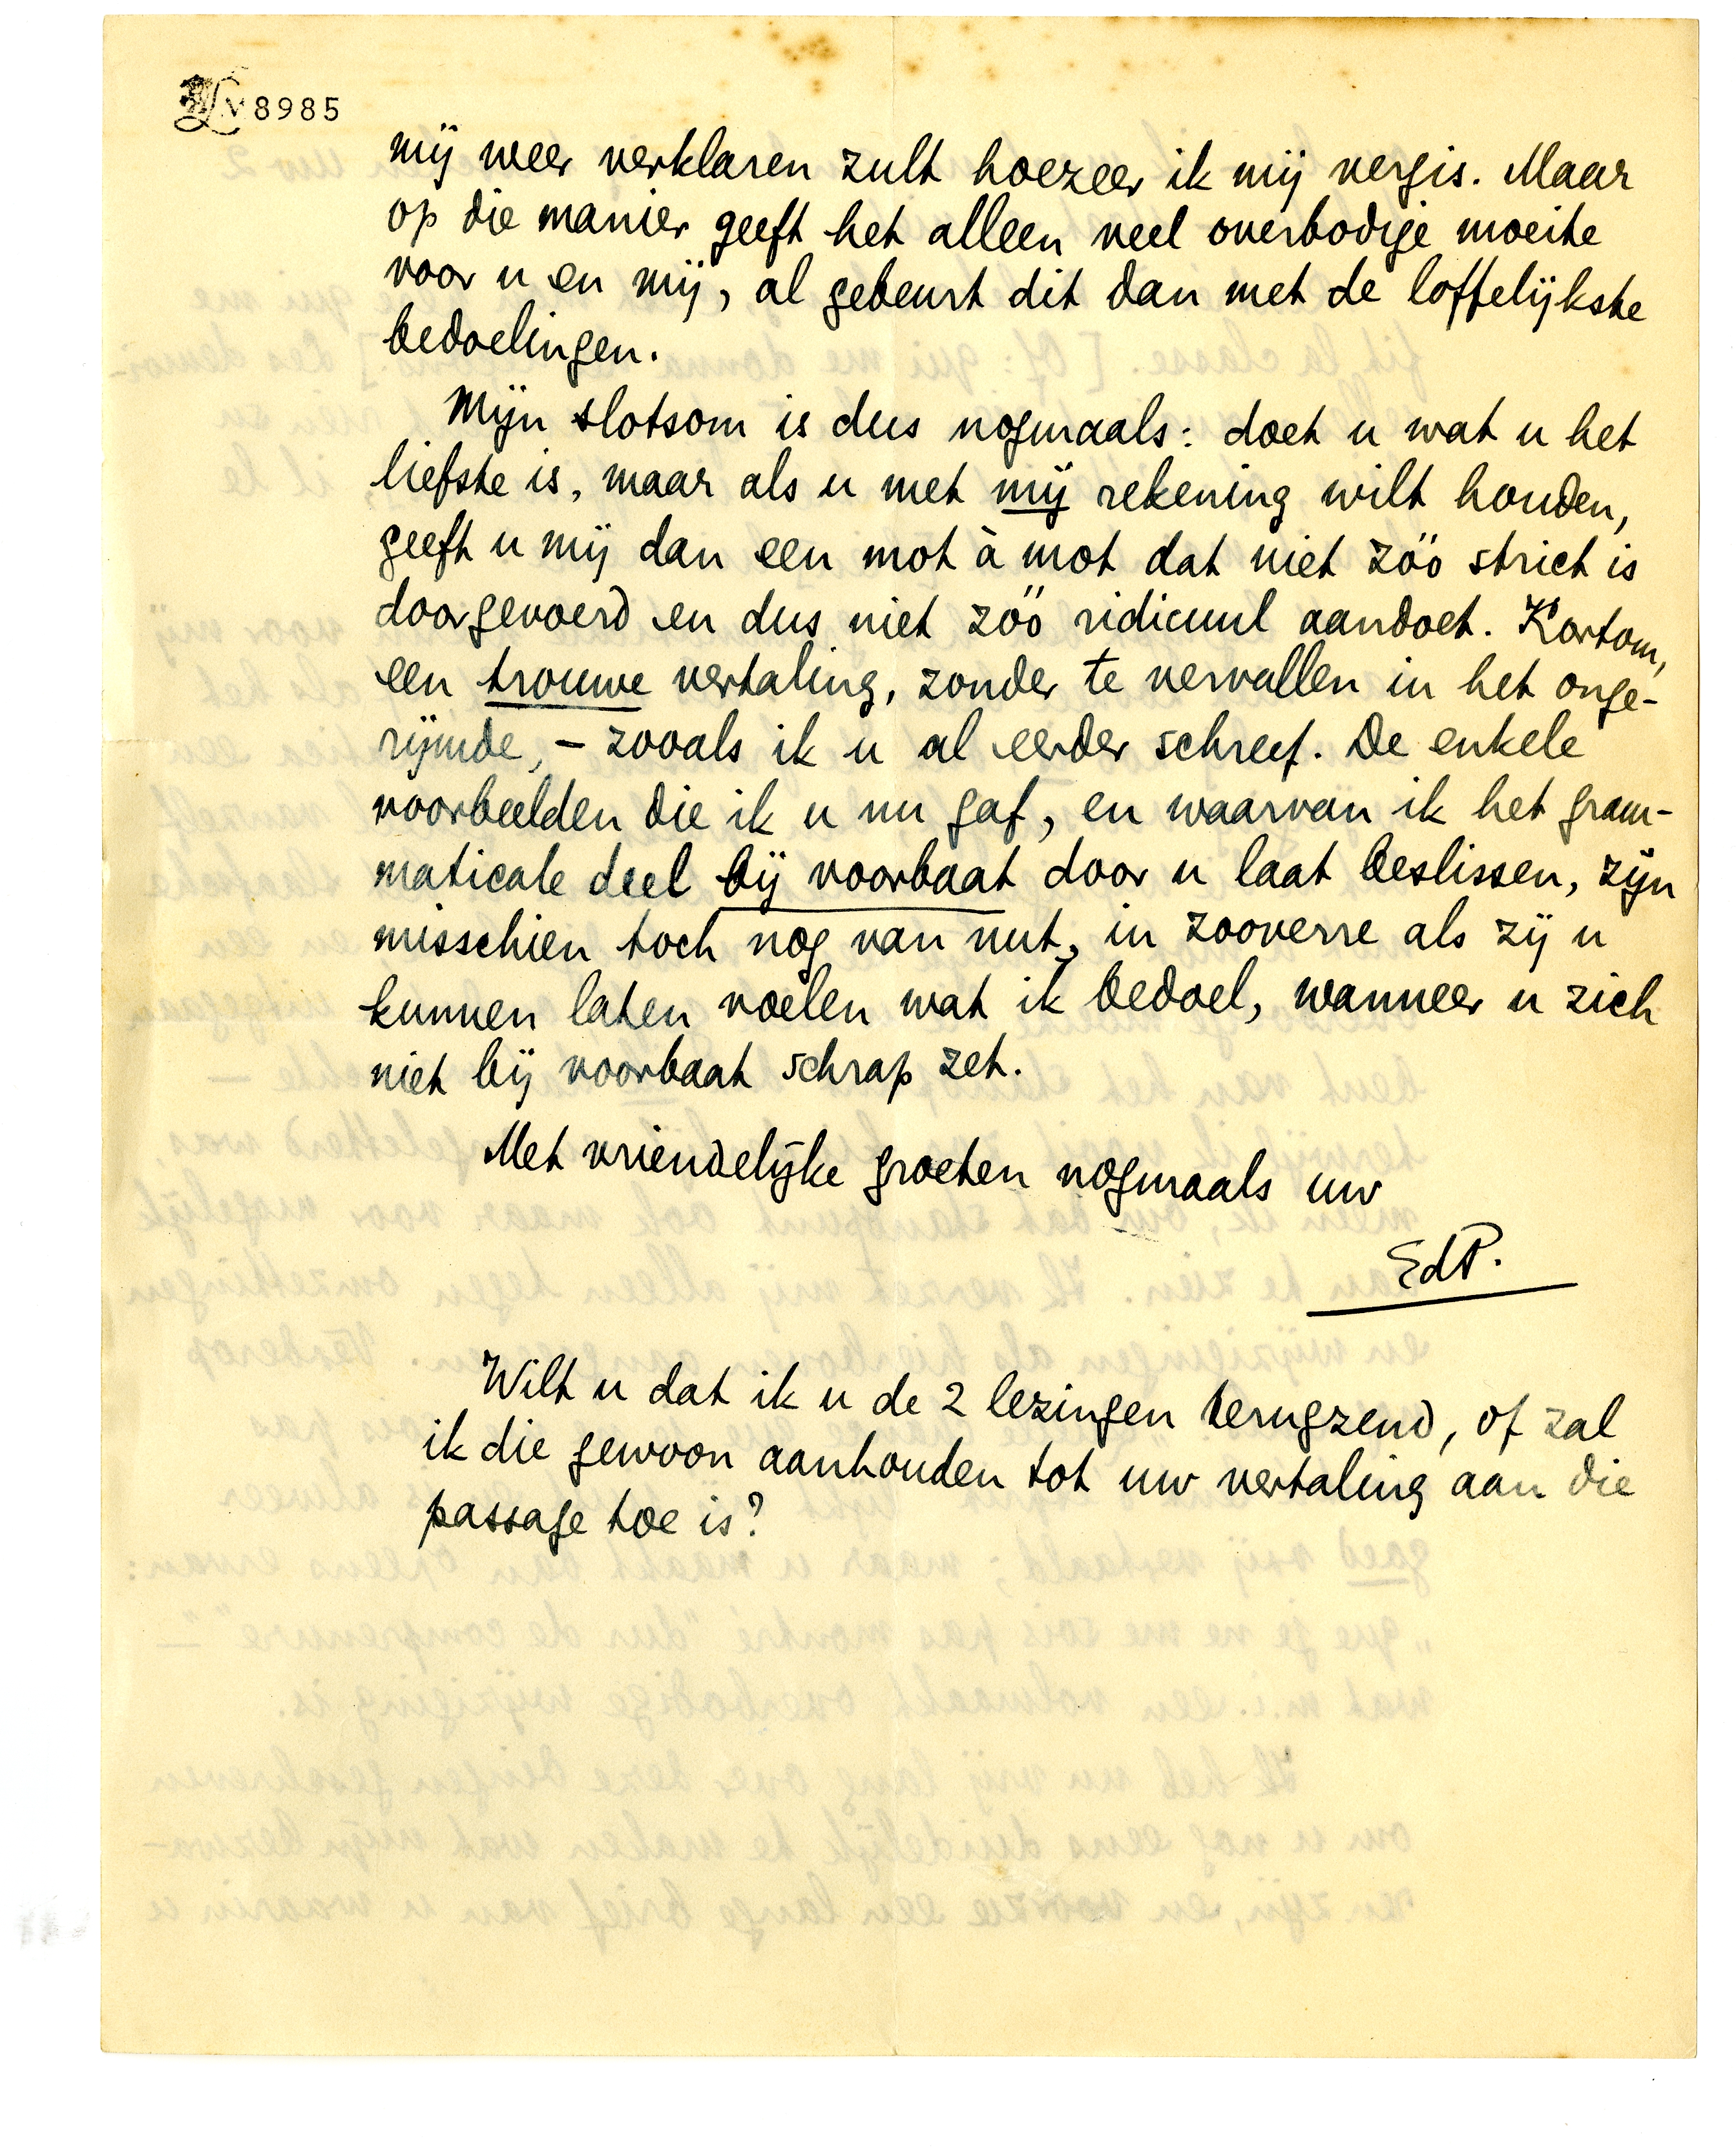 LM V 8985
mij weer verklaren zult hoezeer ik mij vergis. Maar
op die manier geeft het alleen veel overbodige moeite
voor u en mij, al gebeurt dit dan met de loffelijkste
bedoelingen.
Mijn slotsom is dus nogmaals: doet u wat u het
liefste is, maar als u met mij rekening wilt houden,
geeft u mij dan een mot à mot dat niet zóó strict is
doorgevoerd en dus niet zóó ridicuul aandoet. Kortom,
een trouwe vertaling, zonder te vervallen in het onge-
rijmde, – zooals ik u al eerder schreef. De enkele
voorbeelden die ik u nu gaf, en waarvan ik het gram-
maticale deel bij voorbaat door u laat beslissen, zijn
misschien toch nog van nut, in zooverre als zij u
kunnen laten voelen wat ik bedoel, wanneer u zich
niet bij voorbaat schrap zet.
Met vriendelijke groeten nogmaals uw
EdP.
Wilt u dat ik u de 2 lezingen terugzend, of zal
ik die gewoon aanhouden tot uw vertaling aan die
passage toe is?